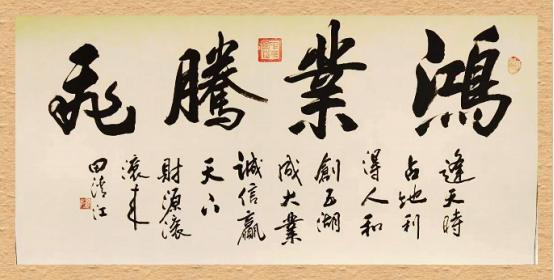 鴻業騰飛
逢天時
占地利
得人和
創五湖
成大業
誠信贏
天下
財源滾
滾来
田清江